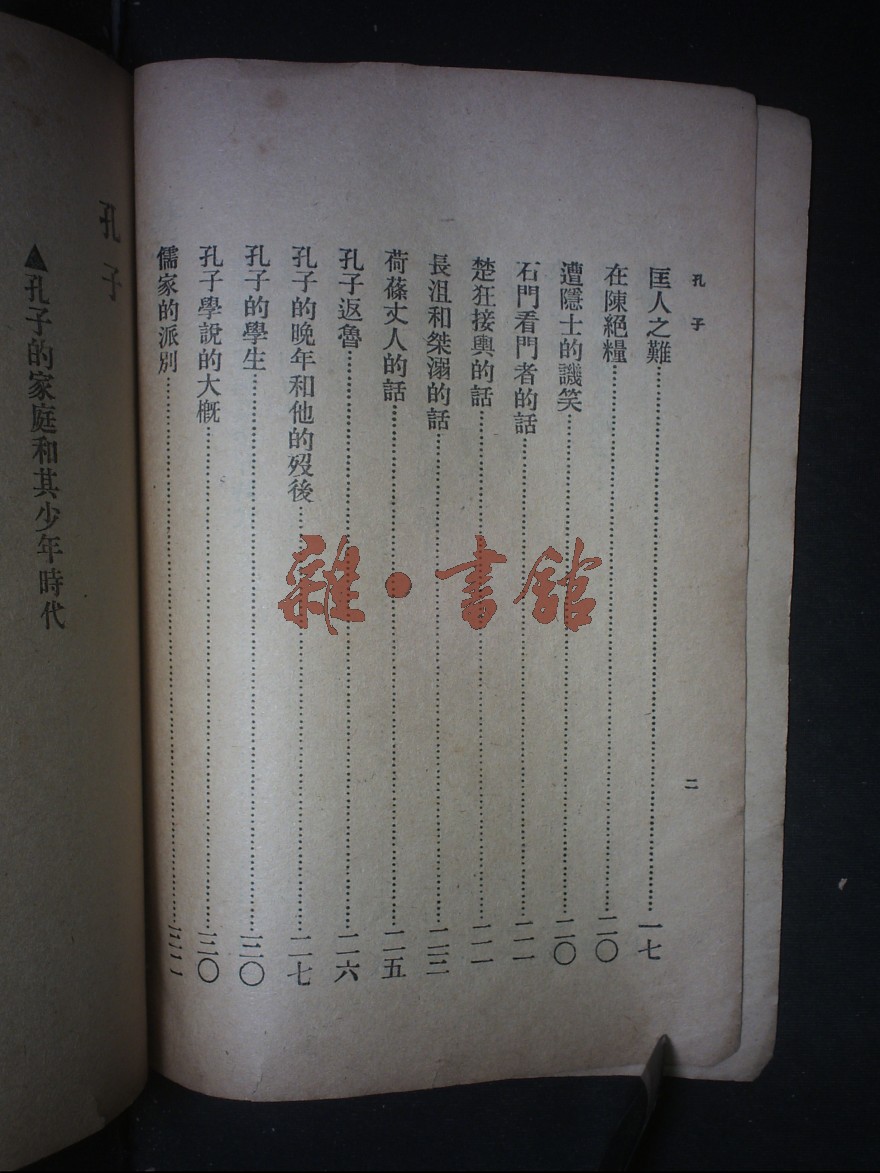 孔子
二
匡人之難……一七
在陳絕糧……二〇
遭隱士的譏笑……二〇
石門看門者的話……二一
楚狂接輿的話……二一
長沮和桀溺的話……二三
荷蓧丈人的話……二五
孔子返魯……二六
孔子的晚年和他的歿後……二七
孔子的學生……三〇
孔子學說的大概……三〇
儒家的派別……三二
孔子
▲孔子的家庭和其少年時代
雜·書館